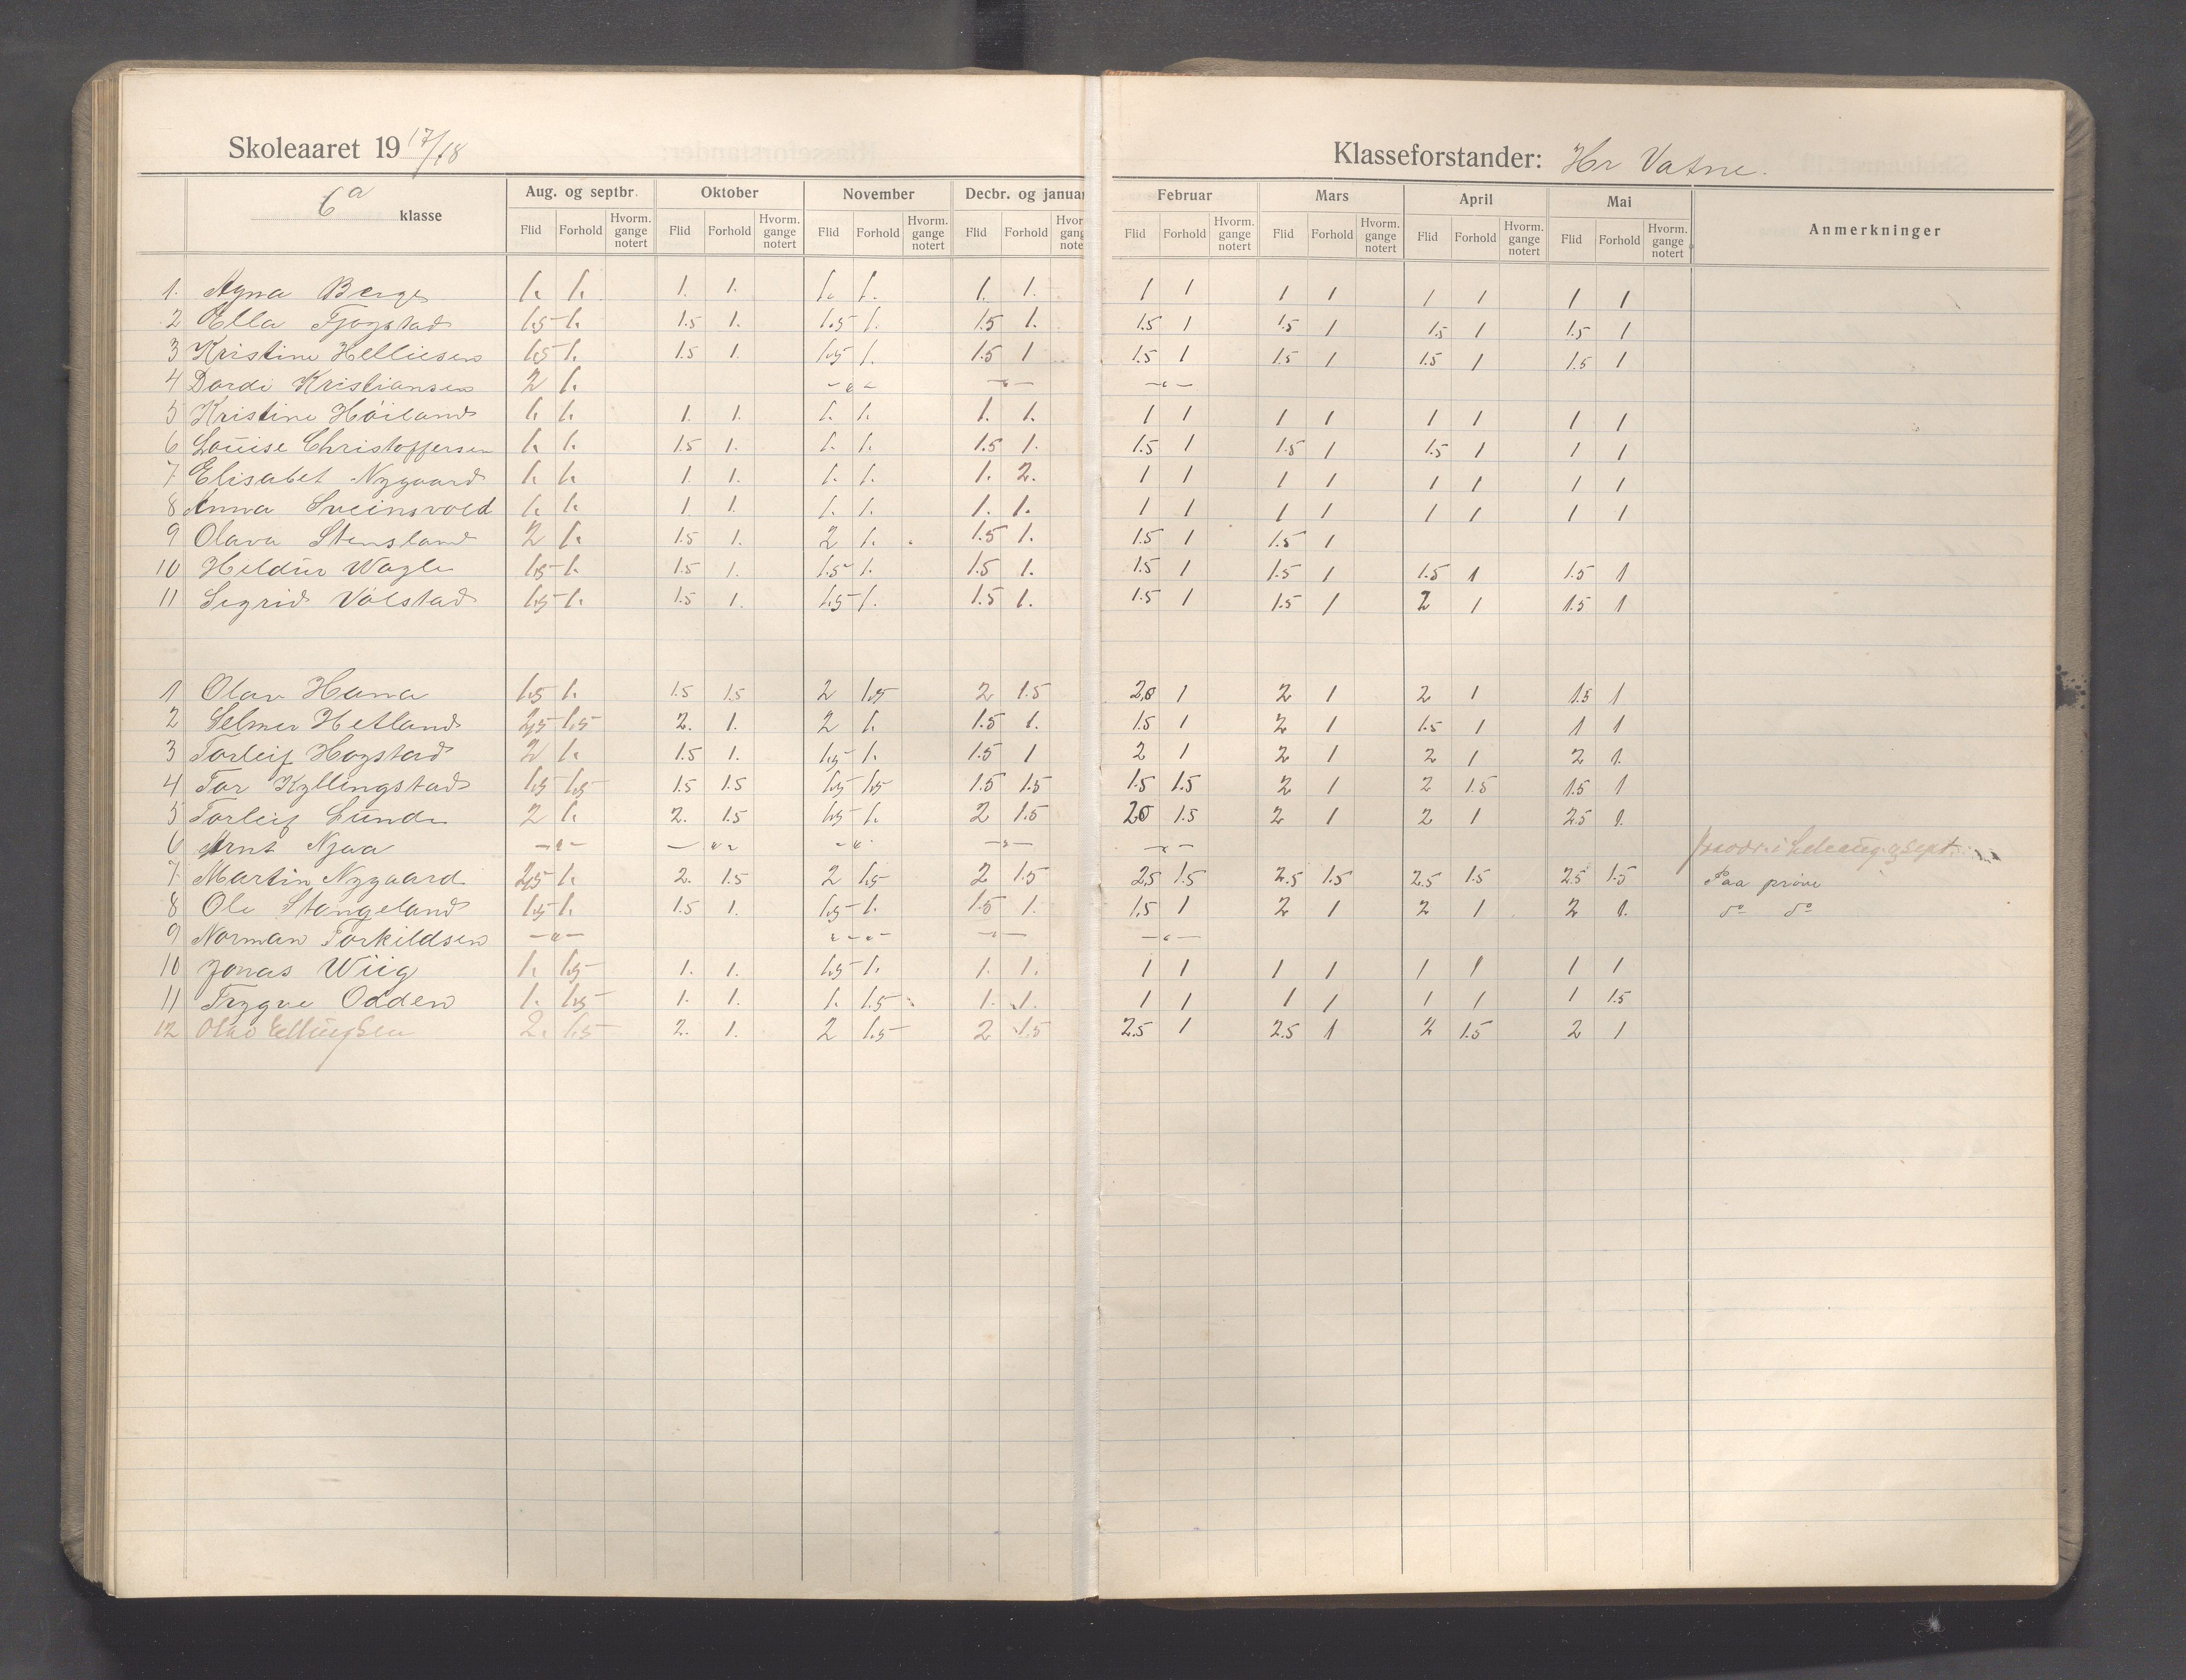 Skoleaaret 19 17/18
Klasseforstander: Hr Vatne.
6a klasse
Aug. og septbr. Oktober November Decbr. og januar Februar Mars April Mai Anmerkninger
Flid Forhold Hvorm. gange notert Flid Forhold Hvorm. gange notert Flid Forhold Hvorm. gange notert Flid Forhold Hvorm. gange notert Flid Forhold Hvorm. gange notert Flid Forhold Hvorm. gange notert Flid Forhold Hvorm. gange notert Flid Forhold Hvorm. gange notert
1. Agna Berge 1. 1. 1. 1. 1. 1. 1. 1. 1 1 1 1 1 1 1 1
2 Ella Tjogstad 1.5 1. 1.5 1. 1.5 1. 1.5 1. 1.5 1 1.5 1 1.5 1 1.5 1
3 Kristine Helliesen 1.5 1. 1.5 1. 1.5 1. 1.5 1 1.5 1 1.5 1 1.5 1 1.5 1
4 Dordi Kristiansen 2 1. -"- -"- -"-
5 Kristine Höiland 1. 1. 1. 1. 1. 1. 1. 1. 1 1 1 1 1 1 1 1
6 Louise Christoffersen 1. 1. 1.5 1. 1. 1. 1.5 1. 1.5 1 1.5 1 1.5 1 1 1
7 Elisabet Nygaard 1. 1. 1. 1. 1. 1. 1. 2. 1 1 1 1 1 1 1 1
8 Anna Sveinsvold 1. 1. 1 1. 1. 1. 1. 1. 1 1 1 1 1 1 1 1
9 Olava Stensland 2 1. 1.5 1. 2 1. 1.5 1. 1.5 1 1.5 1
10 Heldur Wagle 1.5 1. 1.5 1. 1.5 1. 1.5 1. 1.5 1 1.5 1 1.5 1 1.5 1
11 Sigrid Volstad 1.5 1. 1.5 1. 1.5 1. 1.5 1. 1.5 1 1.5 1 2 1 1.5 1
1 Olav Hana 1.5 1. 1.5 1.5 2 1.5 2 1.5 2,0 1 2 1 2 1 1.5 1
2 Selmer Hetland 2,5 1.5 2. 1. 2 1. 1.5 1. 1.5 1 2 1 1.5 1 1 1
3 Torleif Hogstad 2 1. 1.5 1. 1.5 1. 1.5 1 2 1 2 1 2 1 2 1.
4 Tor Kyllingstad 1.5 1.5 1.5 1.5 1.5 1.5 1.5 1.5 1.5 1.5 2 1 2 1.5 1.5 1
5 Torleif Lunde 2 1. 2. 1.5 1.5 1. 2 1.5 20 1.5 2 1 2 1 2.5 1.
6 Arnt Njaa -"- -"- -"- -"- -"-
7 Martin Nygaard 2,5 1. 2. 1.5 2 1.5 2 1.5 2,5 1.5 2.5 1.5 2.5 1.5 2.5 1.5 Paa prøve
8 Ole Stangeland 1.5 1. 1.5 1. 1.5 1. 1.5 1. 1.5 1 2 1 2 1 2 1. do do
9 Norman Torkildsen -"- -"- -"- -"-
10 Jonas Wiig 1. 1.5 1. 1. 1.5 1. 1. 1. 1 1 1 1 1 1 1 1
11 Trygve Odden 1. 1.5 1. 1. 1. 1.5 1. 1. 1 1 1 1 1 1 1 1.5
12 Ellingsen 2. 1.5 2. 1. 2 1.5 2 1.5 2.5 1 2.5 1 2 1.5 2 1